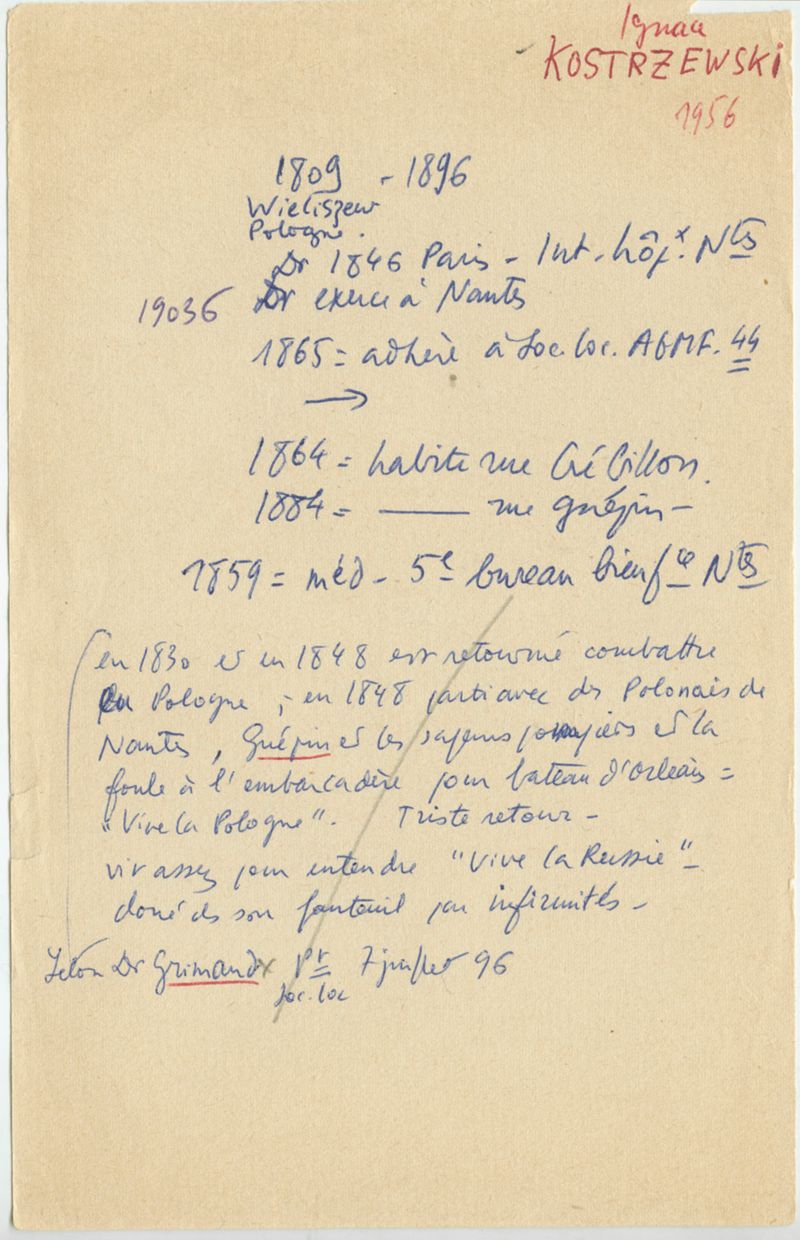 Ignace
KOSTRZEWSKI
1956
1809 - 1896
Wieliszew
Pologne.
Dr 1846 Paris - Int. hôpx. Ntes
19036 Dr exerce à Nantes
1865 = adhère à Soc. loc. AGMF. 44
→
1864 = habite rue Crébillon.
1884 = —— rue Guépin -
1859 = méd - 5e bureau bienfce Ntes
en 1830 et en 1848 est retourné combattre
en Pologne ; en 1848 parti avec des Polonais de
Nantes, Guépin et les sapeurs pompiers et la
foule à l'embarcadère pour bateau d'Orléans =
"Vive la Pologne". Triste retour -
vit assez pour entendre "Vive la Russie" -
cloué ds son fauteuil par infirmités -
Selon Dr Grimaud x Pr 7 juillet 96
Soc. loc